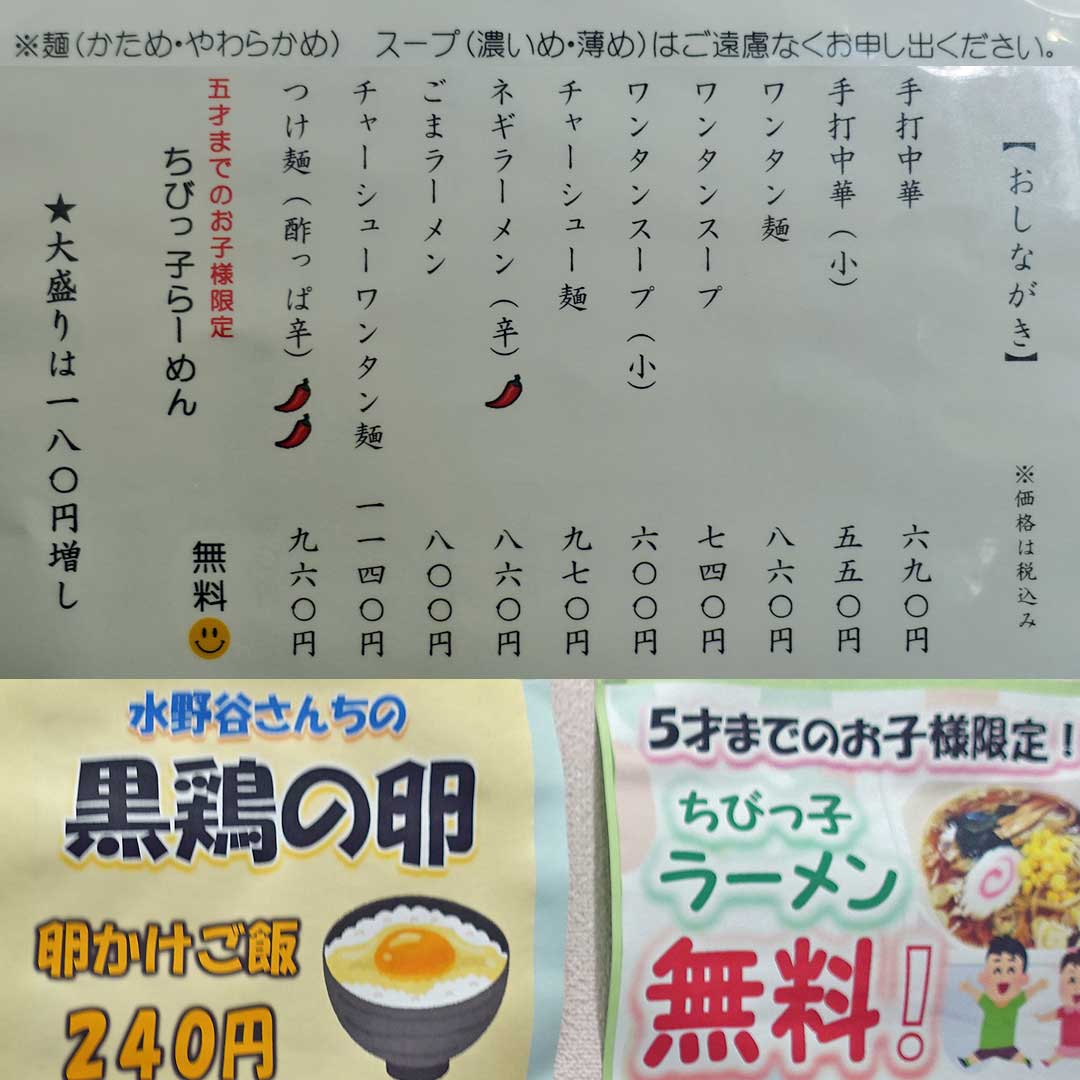 ※麺(かため・やわらかめ) スープ(濃いめ・薄め)はご遠慮なくお申し出ください。
【おしながき】 ※価格は税込み
手打中華 六九〇円
手打中華(小) 五五〇円
ワンタン麺 八六〇円
ワンタンスープ 七四〇円
ワンタンスープ(小) 六〇〇円
チャーシュー麺 九七〇円
ネギラーメン(辛) 八六〇円
ごまラーメン 八〇〇円
チャーシューワンタン麺 一一四〇円
つけ麺(酢っぱ辛) 九六〇円
五才までのお子様限定
ちびっ子らーめん 無料
★大盛りは一八〇円増し
水野谷さんちの
黒鶏の卵
卵かけご飯
240円
5才までのお子様限定!
ちびっ子
ラーメン
無料!